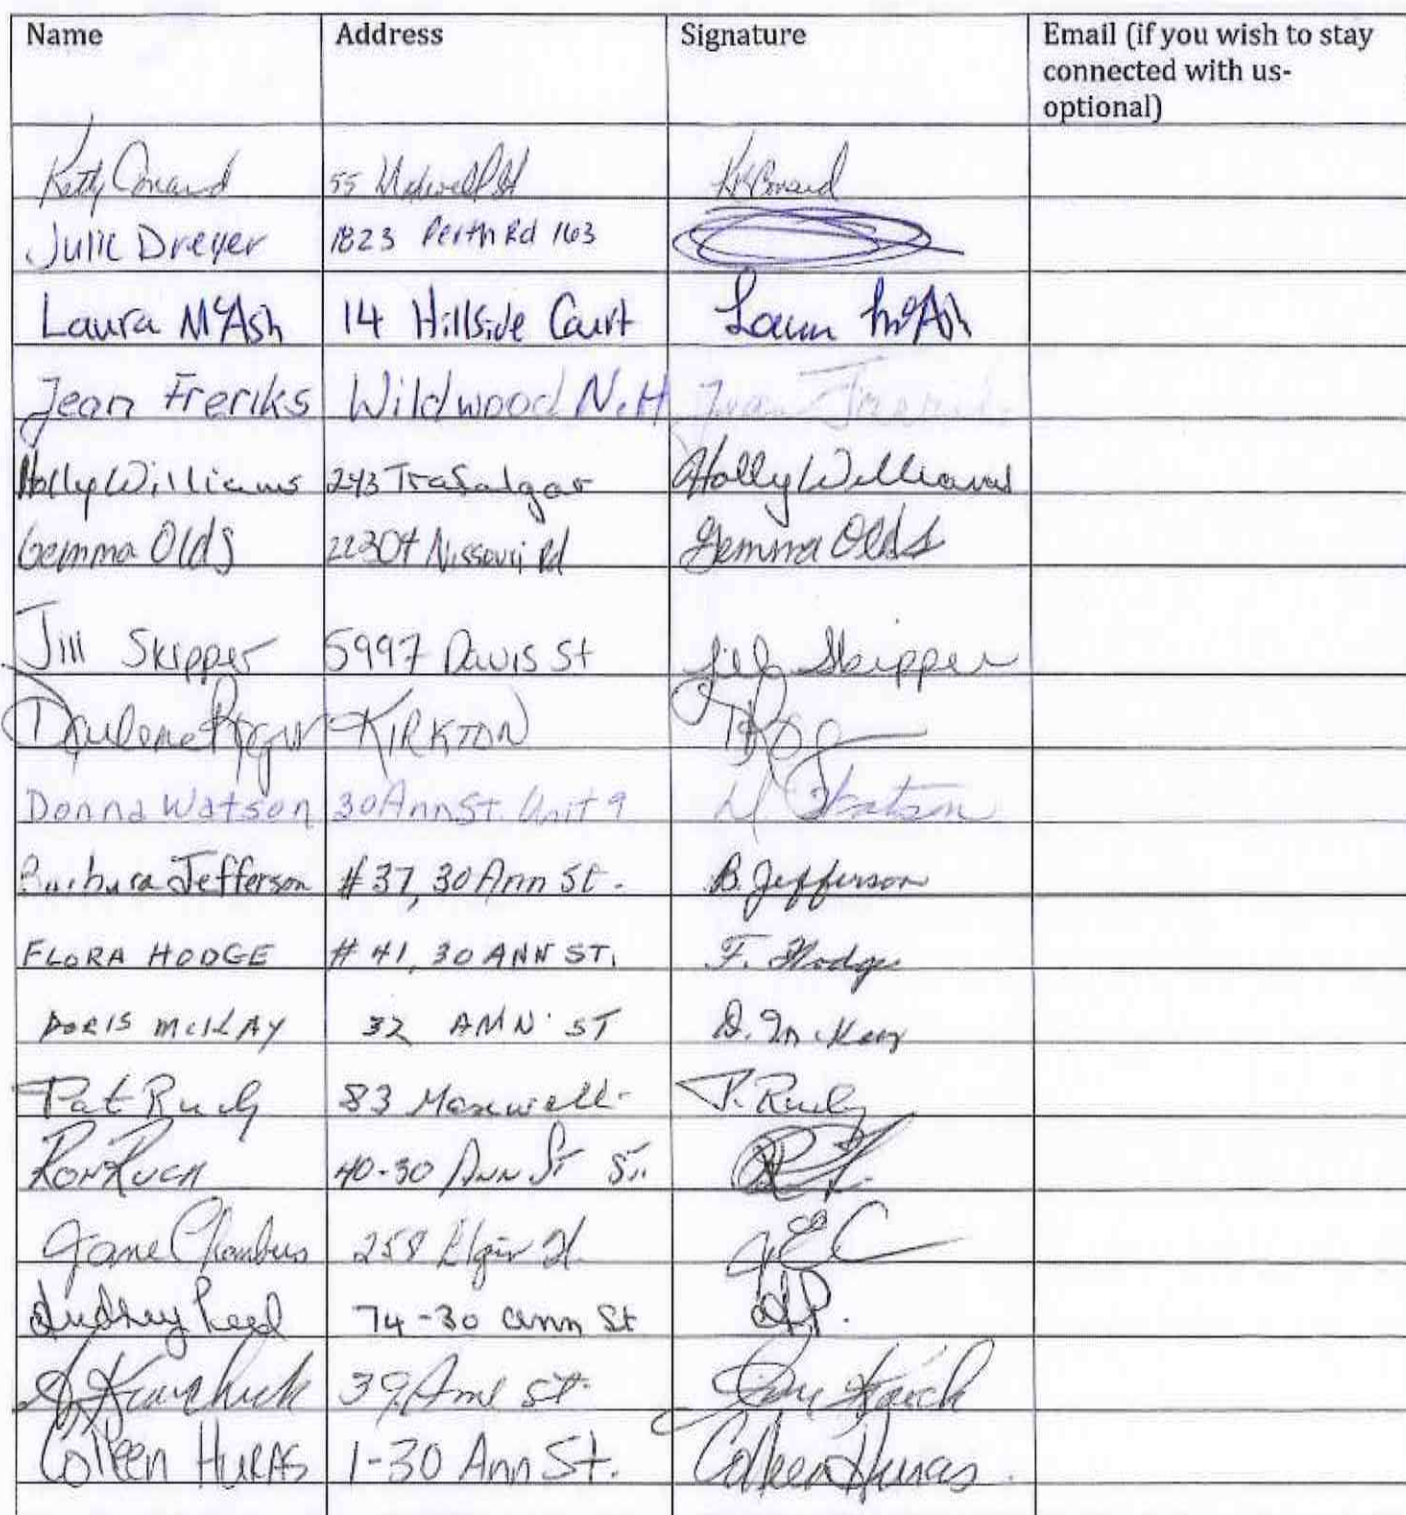 Name Address Signature Email (if you wish to stay
connected with us-
optional)
Conard 55
Julie Dreyer 1823 Perth Rd 163
Laura McAsh 14 Hillside Court Laura McAsh
Jean Freriks Wildwood N.H Jean
Holly Williams 243 Trafalgar Holly Williams
Gemma Olds 22304 Nissouri Rd Gemma Olds
Jill Skipper 5997 Davis St Jill Skipper
Darlene KIRKTON
Donna Watson 30 Ann St. Unit 9 D Watson
Barbara Jefferson #37, 30 Ann St. B. Jefferson
FLORA HODGE #41, 30 ANN ST. F. Hodge
DORIS McKAY 32 ANN ST D. McKay
Pat 83 Maxwell P.
RON 40-30 ANN St
Jane Chambers 258 Elgin
Audrey Reed 74-30 Ann St
39 St.
Colleen HURAS 1-30 Ann St. Colleen Huras